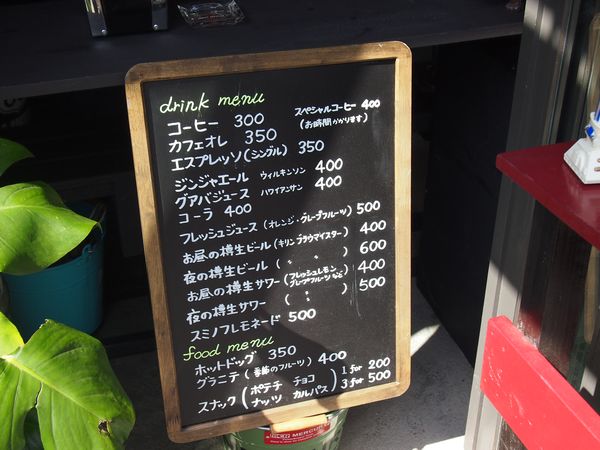 drink menu
コーヒー 300 スペシャルコーヒー 400
(お時間かかります)
カフェオレ 350
エスプレッソ(シングル) 350
ジンジャエール ウィルキンソン 400
グアバジュース ハワイアンサン 400
コーラ 400
フレッシュジュース(オレンジ・グレープフルーツ) 500
お昼の樽生ビール(キリンブラウマイスター) 400
夜の樽生ビール( 〃 〃 ) 600
お昼の樽生サワー(フレッシュレモン グレープフルーツなど) 400
夜の樽生サワー( 〃 ) 500
スミノフレモネード 500
food menu
ホットドッグ 350
グラニテ(季節のフルーツ) 400
スナック(ポテチ チョコ ナッツ カルパス) 1 for 200
3 for 500
MERCURY